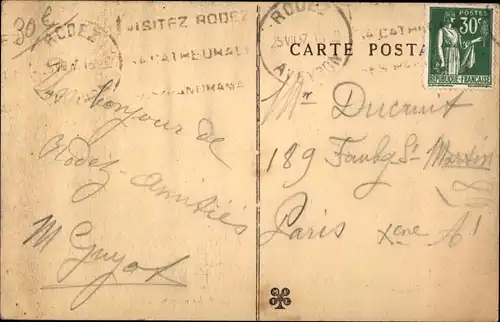 30 €
RODEZ
VISITEZ RODEZ
SA CATHEDRALE
PANORAMA
RODEZ
AVEYRON
SA CATH
CARTE POSTA
POSTES
30c
REPUBLIQUE FRANÇAISE
Un bonjour de
Rodez. amitiés
M Guyot
Mr Ducruit
189 Faubg St Martin
Paris Xeme Ar